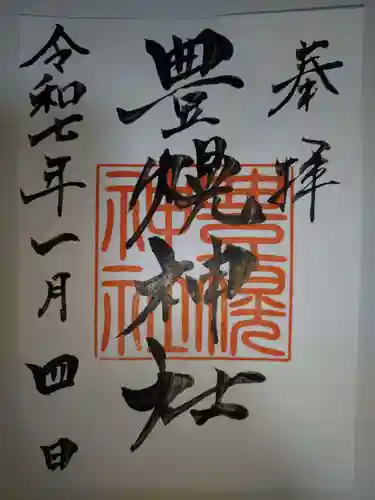 奉拝
豊幌神社
令和七年一月四日
豊幌
神社